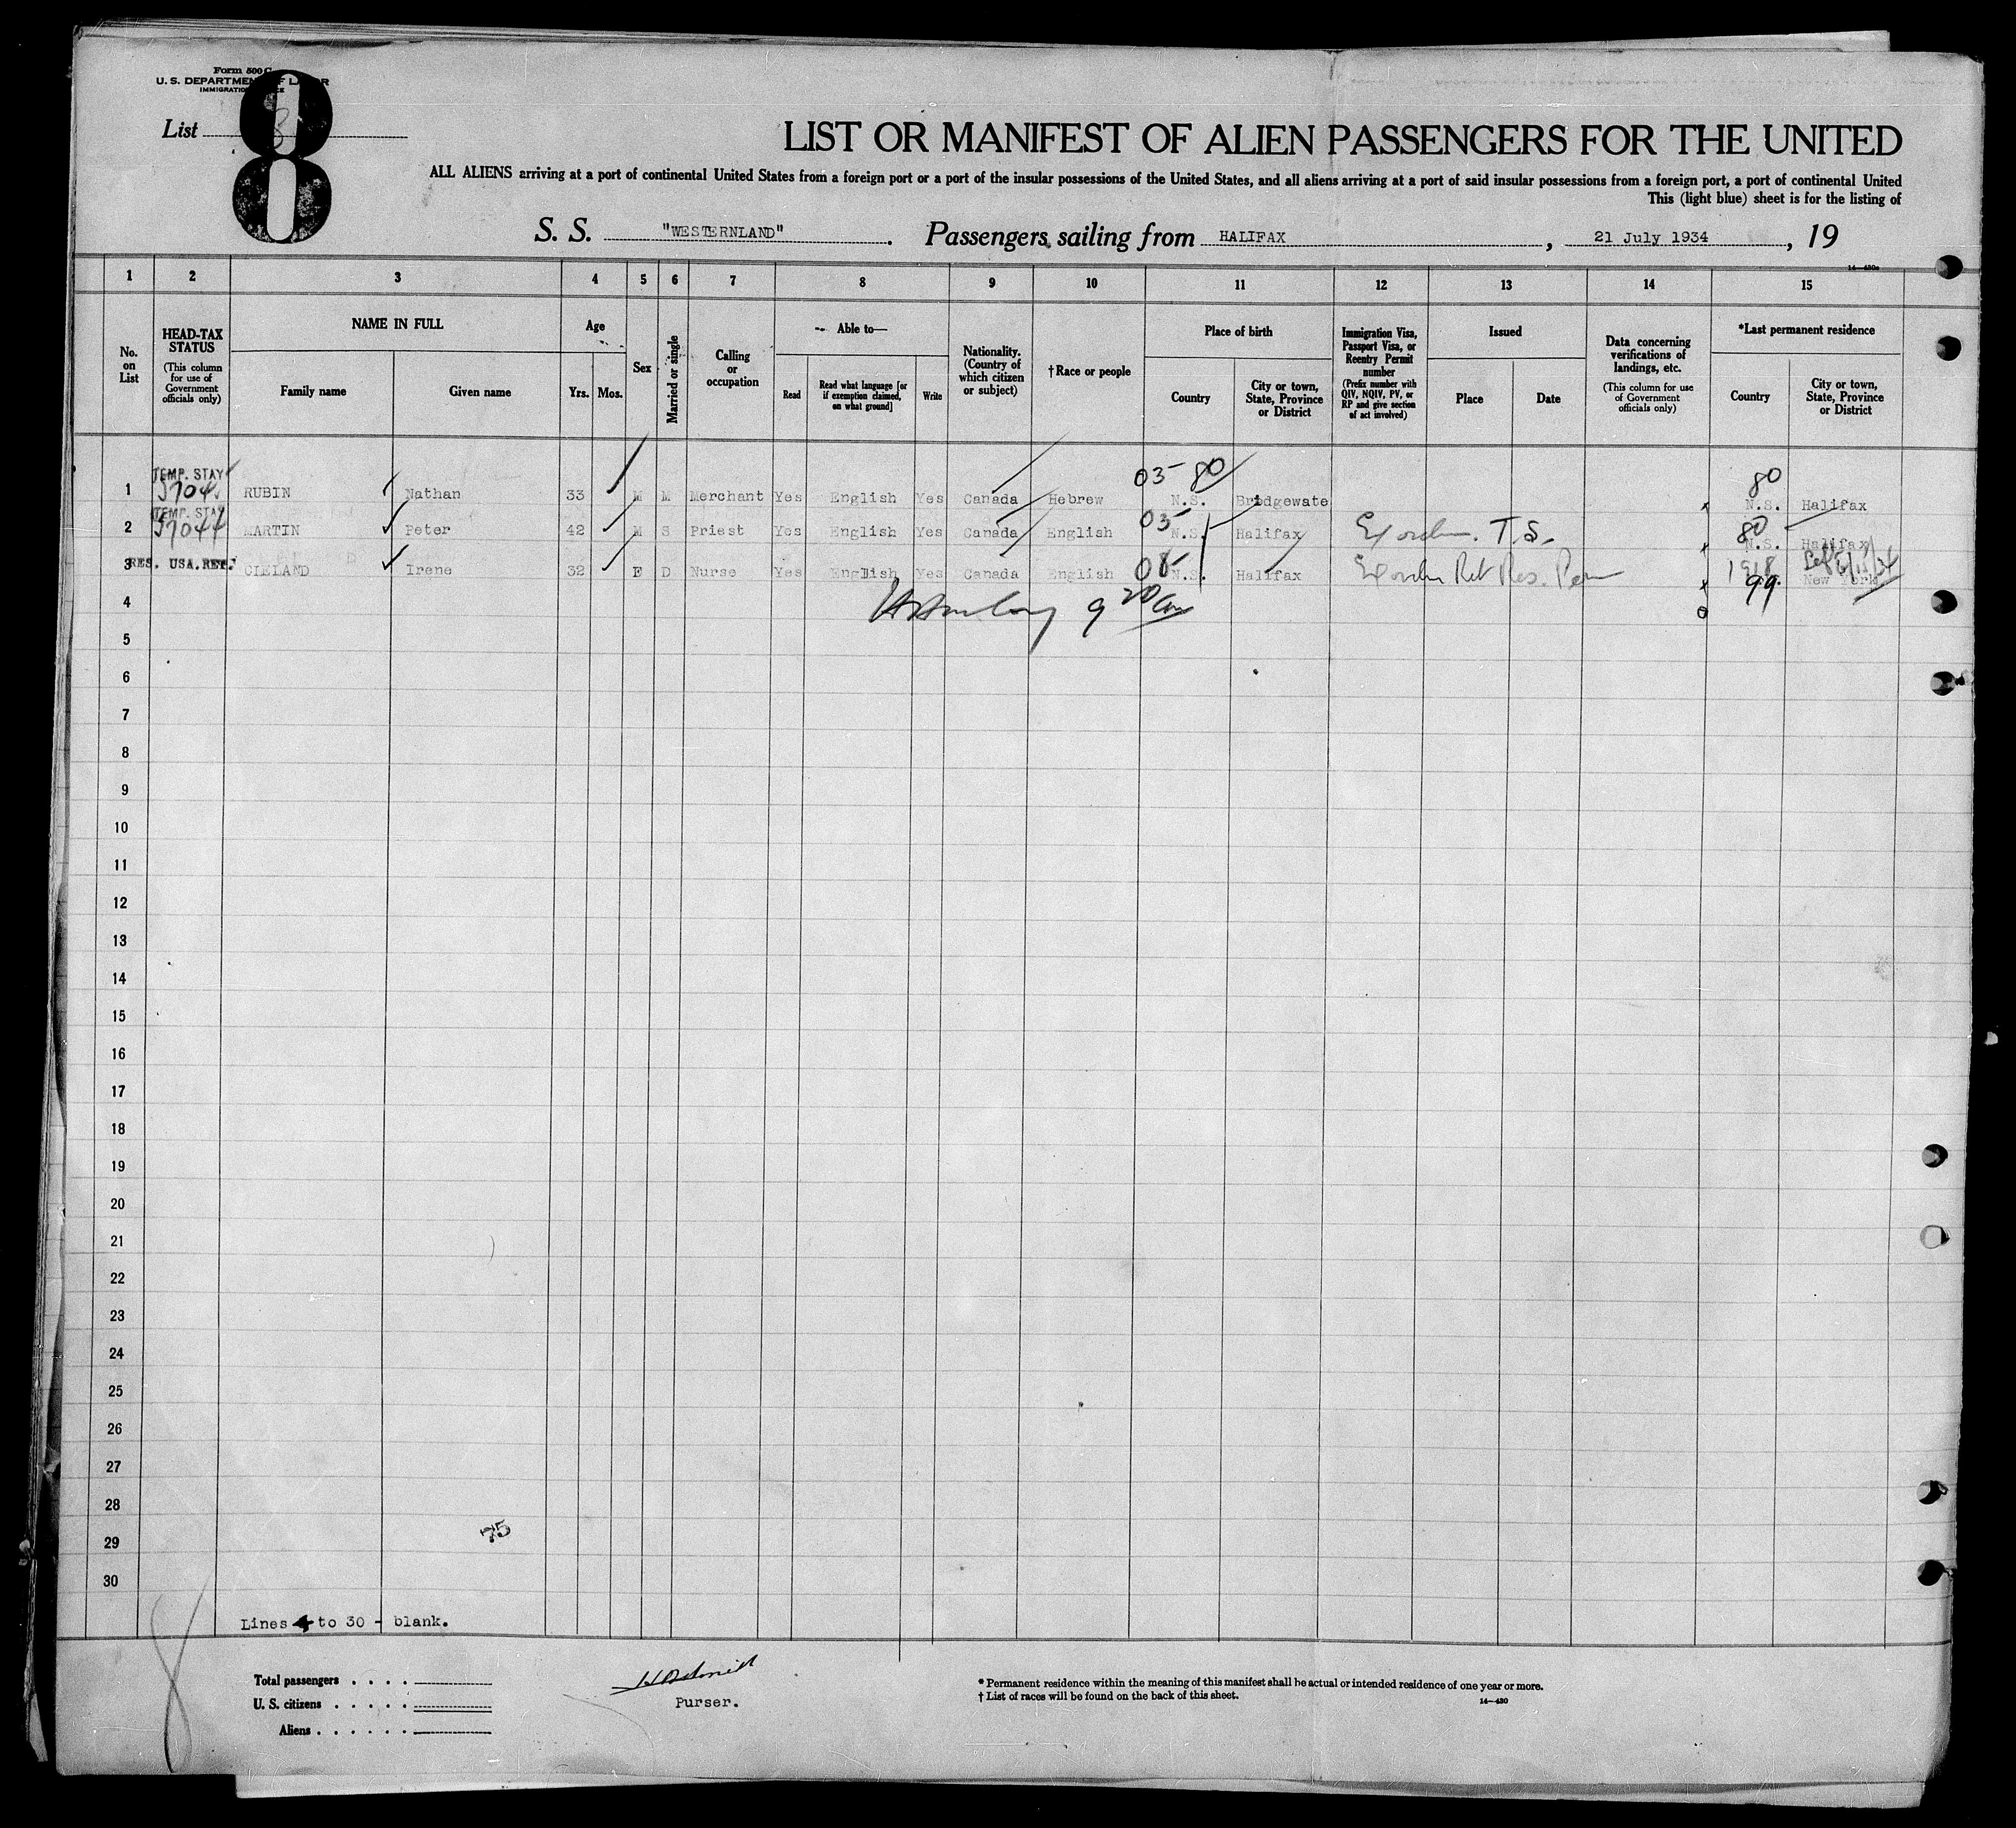 Form 500 C
U. S. DEPARTMENT OF LABOR
IMMIGRATION SERVICE
List 8
8
LIST OR MANIFEST OF ALIEN PASSENGERS FOR THE UNITED
ALL ALIENS arriving at a port of continental United States from a foreign port or a port of the insular possessions of the United States, and all aliens arriving at a port of said insular possessions from a foreign port, a port of continental United
This (light blue) sheet is for the listing of
S. S. "WESTERNLAND". Passengers sailing from HALIFAX, 21 July 1934, 19
14—430a
1 2 3 4 5 6 7 8 9 10 11 12 13 14 15
No. on List
HEAD-TAX STATUS (This column for use of Government officials only)
NAME IN FULL
Family name Given name
Age
Yrs. Mos.
Sex
Married or single
Calling or occupation
Able to—
Read Read what language [or if exemption claimed, on what ground] Write
Nationality. (Country of which citizen or subject)
†Race or people
Place of birth
Country City or town, State, Province or District
Immigration Visa, Passport Visa, or Reentry Permit number (Prefix number with QIV, NQIV, PV, or RP and give section of act involved)
Issued
Place Date
Data concerning verifications of landings, etc. (This column for use of Government officials only)
*Last permanent residence
Country City or town, State, Province or District
TEMP. STAY 03-80 80
1 RUBIN Nathan 33 M M Merchant Yes English Yes Canada Hebrew N.S. Bridgewate N.S. Halifax
TEMP. STAY 03- 80
2 57044 MARTIN Peter 42 M S Priest Yes English Yes Canada English N.S. Halifax T.S. N.S. Halifax
RES. USA. RET.
3 CLELAND Irene 32 F D Nurse Yes English Yes Canada English N.S. Halifax Ret Res. 99 New York
4 9 20 am
5
6
7
8
9
10
11
12
13
14
15
16
17
18
19
20
21
22
23
24
25
26
27
28
29 75
30
Lines 4 to 30 - blank.
8
Total passengers
U. S. citizens
Aliens
Purser.
* Permanent residence within the meaning of this manifest shall be actual or intended residence of one year or more.
† List of races will be found on the back of this sheet.
14—430